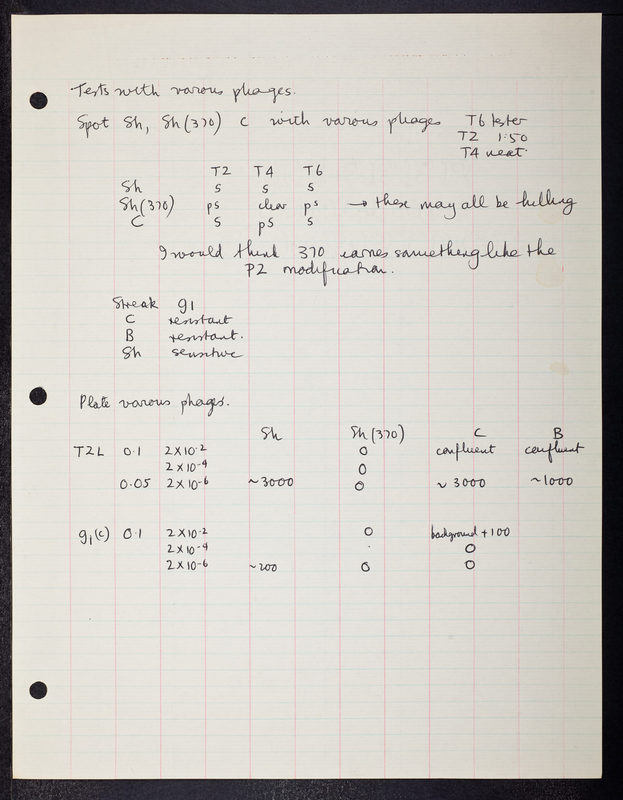 Tests with various phages.
Spot Sh, Sh(370) C with various phages T6 tester
T2 1:50
T4 neat
T2 T4 T6
Sh s s s
Sh(370) ps clear ps → these may all be killing
C s ps s
I would think 370 carries something like the
P2 modification.
Streak g1
C resistant
B resistant.
Sh sensitive
Plate various phages.
Sh Sh(370) C B
T2L 0.1 2 x 10-2 0 confluent confluent
2 x 10-4 0
0.05 2 x 10-6 ~3000 0 ~ 3000 ~1000
g1(c) 0.1 2 x 10-2 0 background +100
2 x 10-4 . 0
2 x 10-6 ~200 0 0